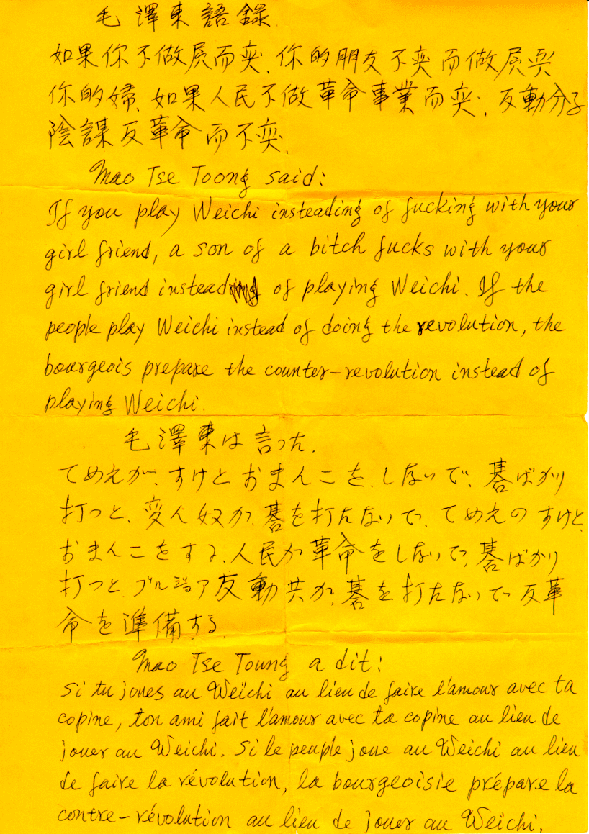 毛澤東語録
如果你不做屄而奕,你的朋友不奕而做屄與
你的婦.如果人民不做革命事業而奕;反動分子
陰謀反革命而不奕.
Mao Tse Toong said:
If you play Weichi insteading of fucking with your
girl friend, a son of a bitch fucks with your
girl friend instead of playing Weichi. If the
people play Weichi instead of doing the revolution, the
bourgeois prepare the counter-revolution instead of
playing Weichi.
毛澤東は言った.
てめえが、すけと おまんこを しないで、碁ばかり
打つと、変人奴が 碁を打たないで、てめえの すけと
おまんこをする.人民が革命をしないで、碁ばかり
打つと 反動共が、碁を打たないで 反革
命を準備する.
Mao Tse Toung a dit:
Si tu joues au Weichi au lieu de faire l'amour avec ta
copine, ton ami fait l'amour avec ta copine au lieu de
jouer au Weichi. Si le peuple joue au Weichi au lieu
de faire la révolution, la bourgeoisie prépare la
contre-révolution au lieu de jouer au Weichi.